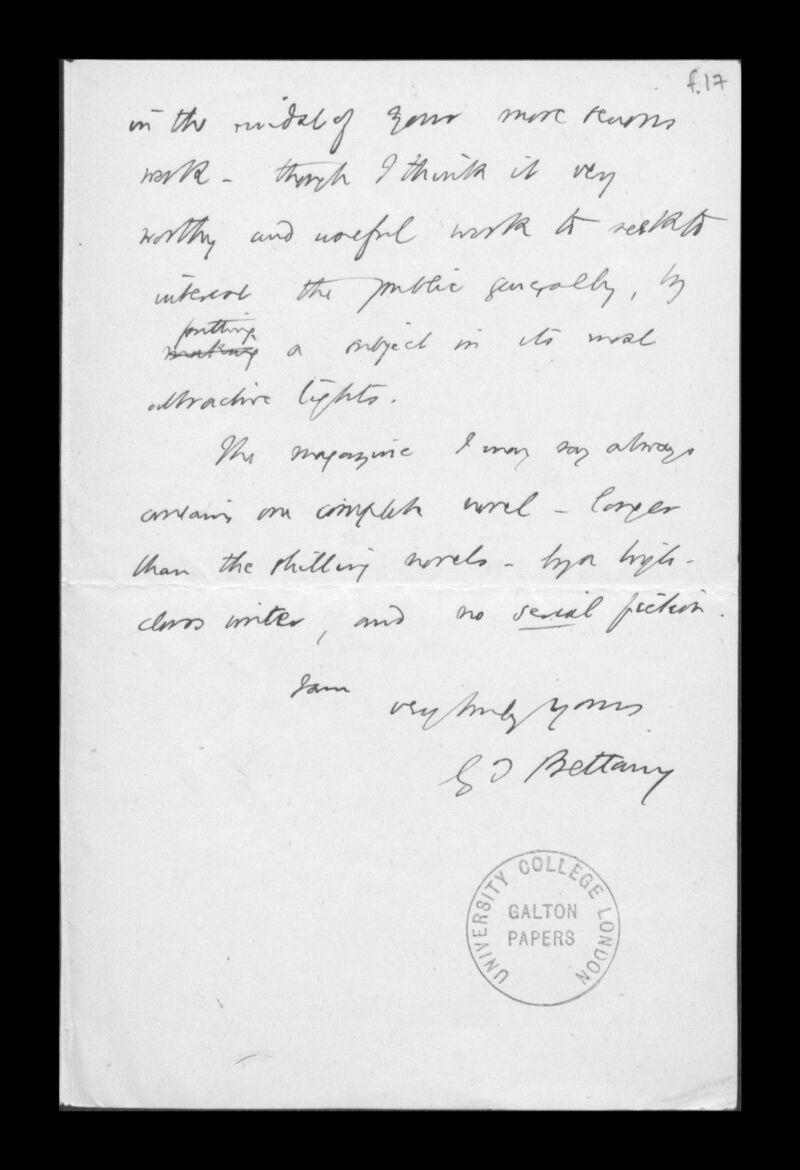 f.17
in the midst of your more serious
work - though I think it very
worthy and useful work to seek to
interest the public generally, by
putting
making a subject in its most
attractive lights.
The magazine I may say always
contains one complete novel - longer
than the shilling novels - by a high-
class writer, and no serial fiction.
I am
very truly yours
G T Bettany
UNIVERSITY COLLEGE LONDON
GALTON
PAPERS